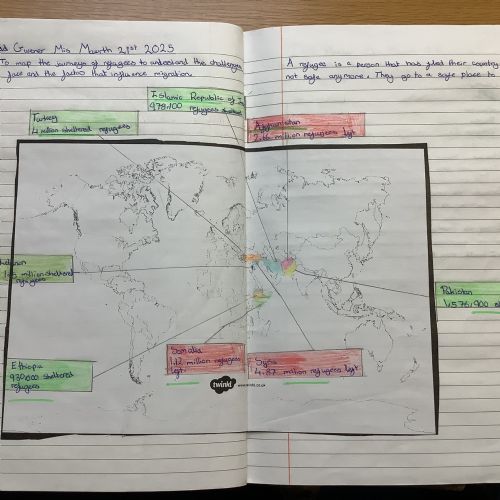 Gwener Mis Mawrth 21st 2025
To map the journeys of refugees to understand the challenges
face and the factors that influence migration.
A refugee is a person that has fled their country
not safe anymore. They go to a safe place to
Islamic Republic of
979,100 refugees sheltered
Turkey
4 million sheltered refugees
Afghanistan
million refugees left
million sheltered
refugees
Pakistan
1,576,900
Ethiopia
930,000 sheltered
refugees
Somalia
1.12 million refugees
left
Syria
4.87 million refugees left
twinkl